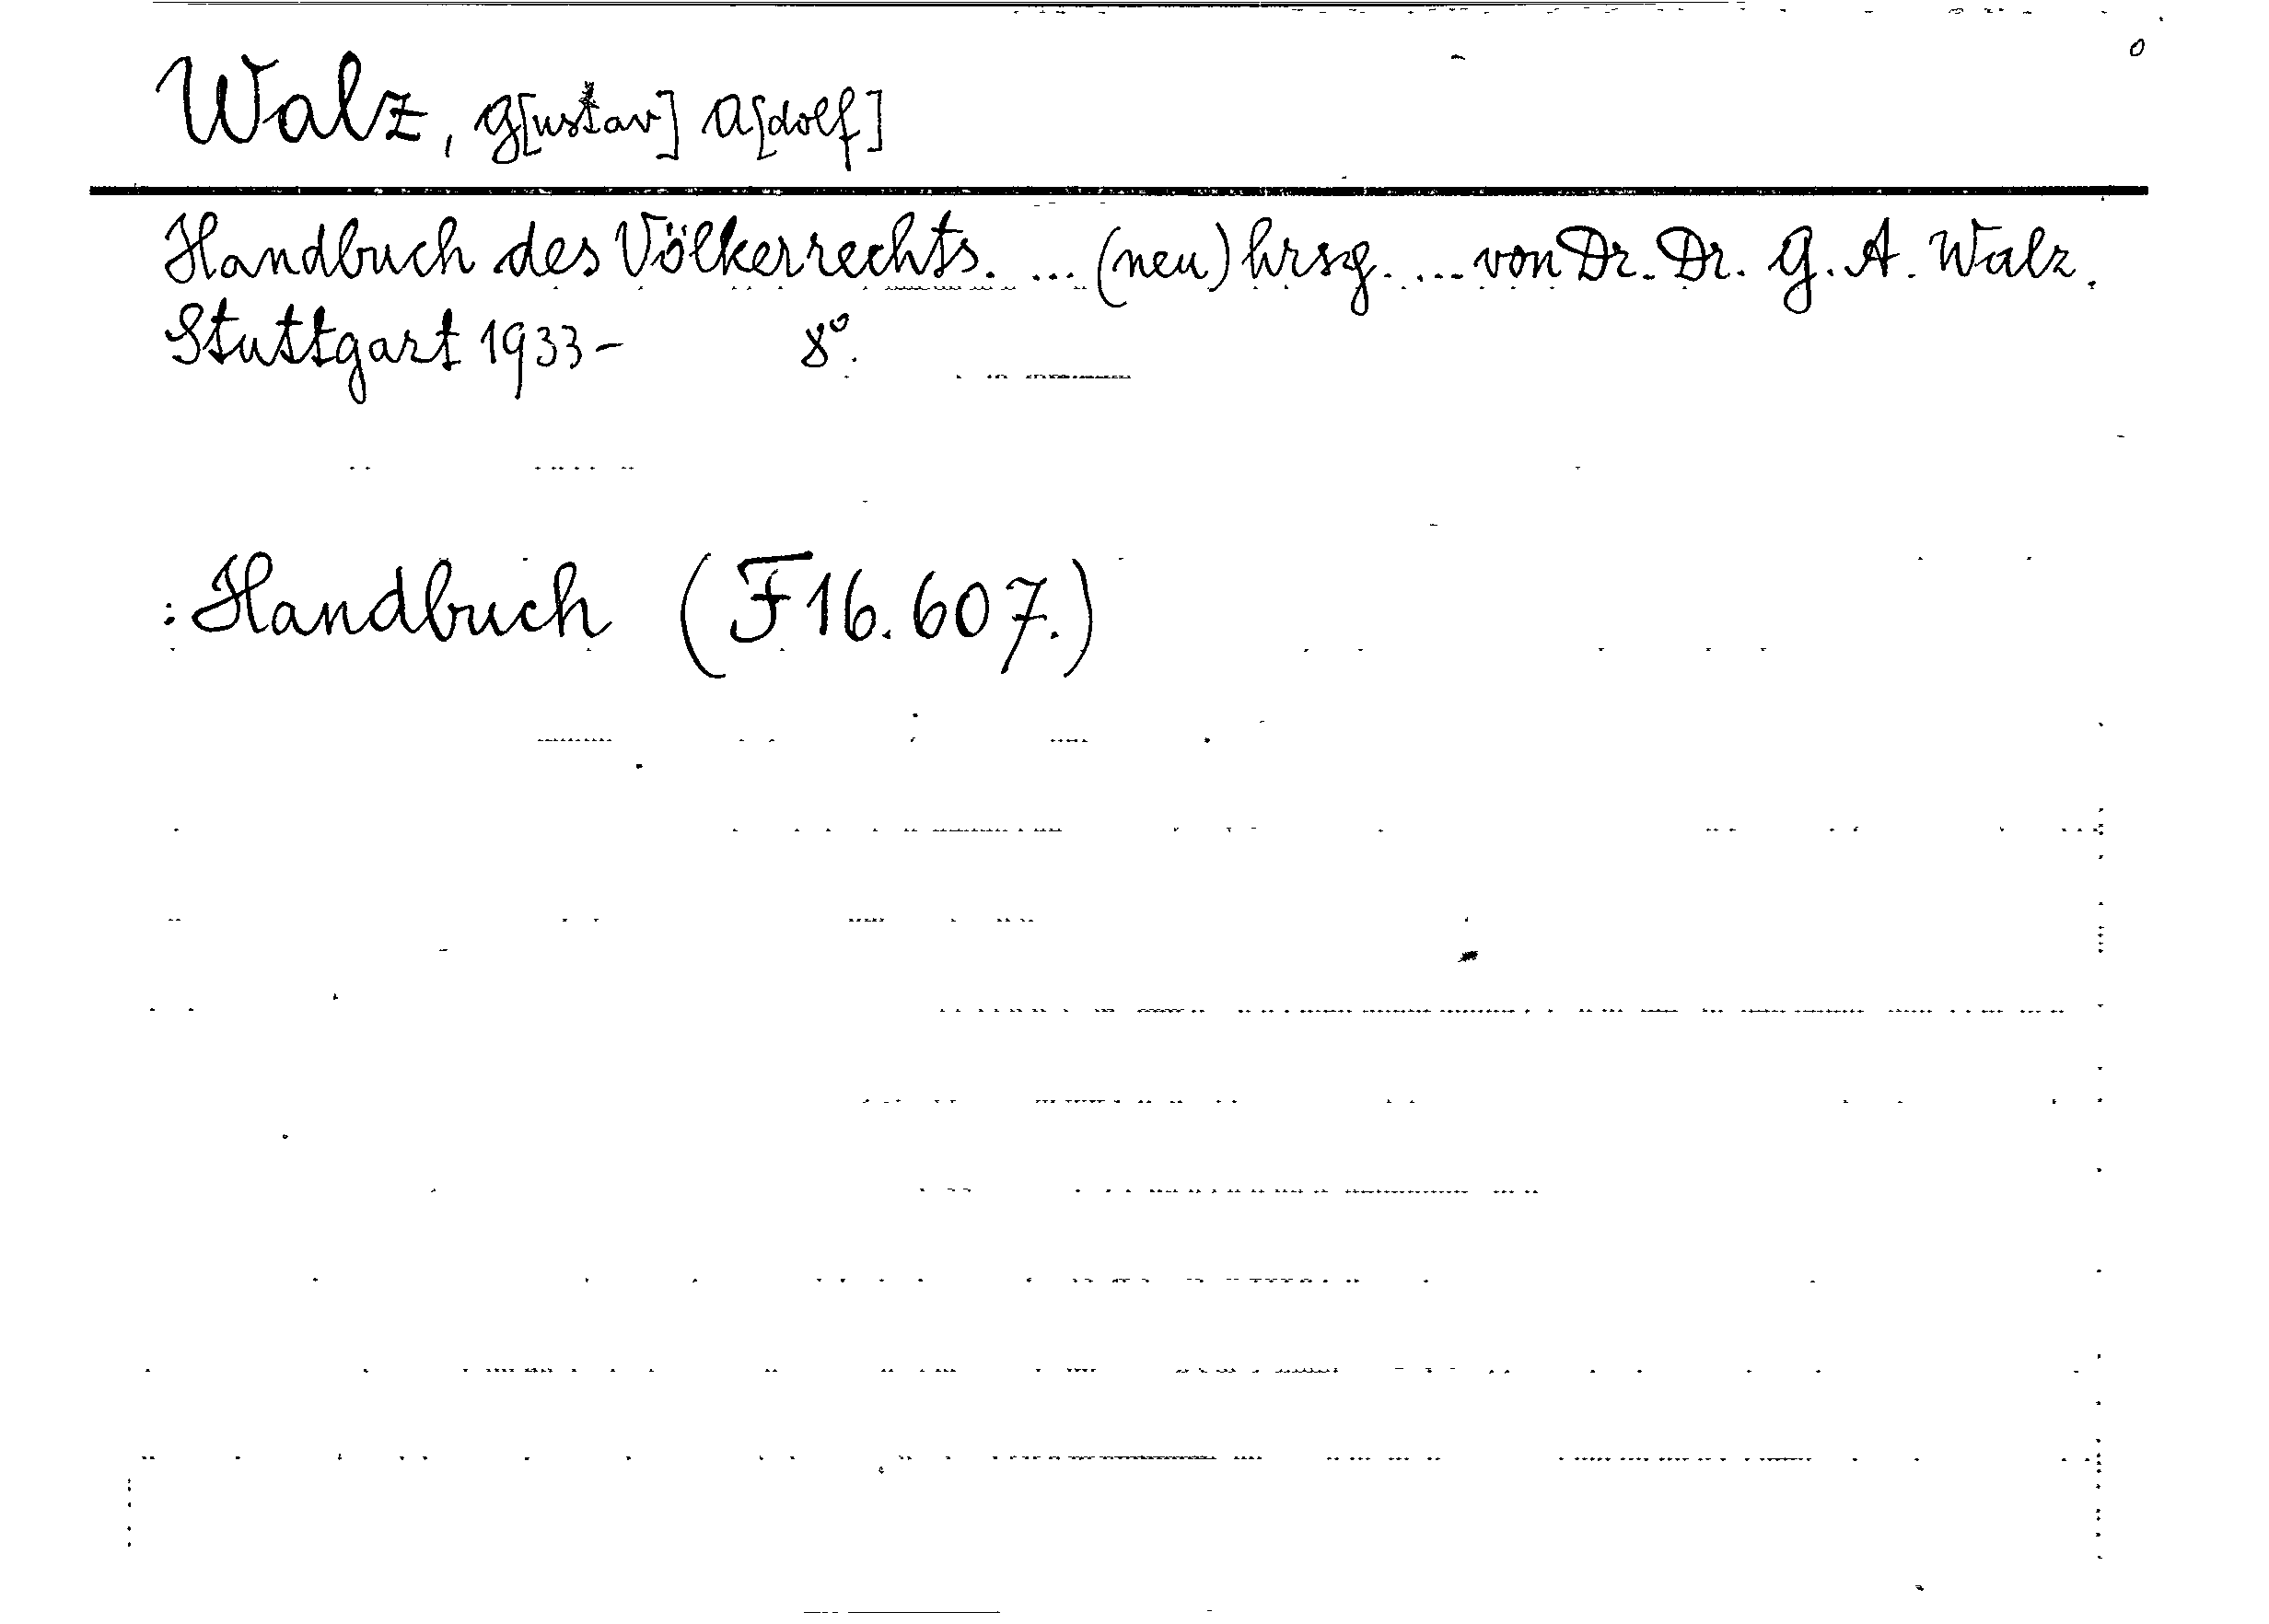 Walz, G[ustav] A[dolf]
Handbuch des Völkerrechts. ... (neu) hrsg. ... von Dr. Dr. G. A. Walz.
Stuttgart 1933- 8°.
: Handbuch (F 16.607.)